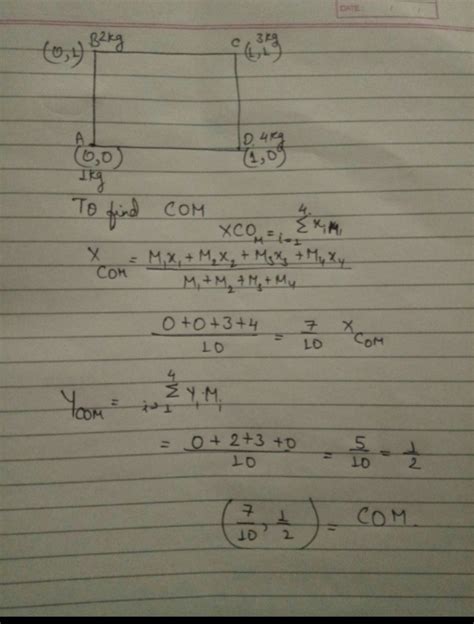 DATE:
B 2kg C 3kg
(0,1) (1,1)
A D 4kg
(0,0) (1,0)
1kg
To find COM
XCOM = 4 Σ i=1 xi Mi
X COM = M1x1 + M2x2 + M3x3 + M4x4
M1 + M2 + M3 + M4
0+0+3+4 / 10 = 7/10 X COM
YCOM = 4 Σ i=1 Yi Mi
= 0+2+3+0 / 10 = 5/10 = 1/2
(7/10, 1/2) = COM.